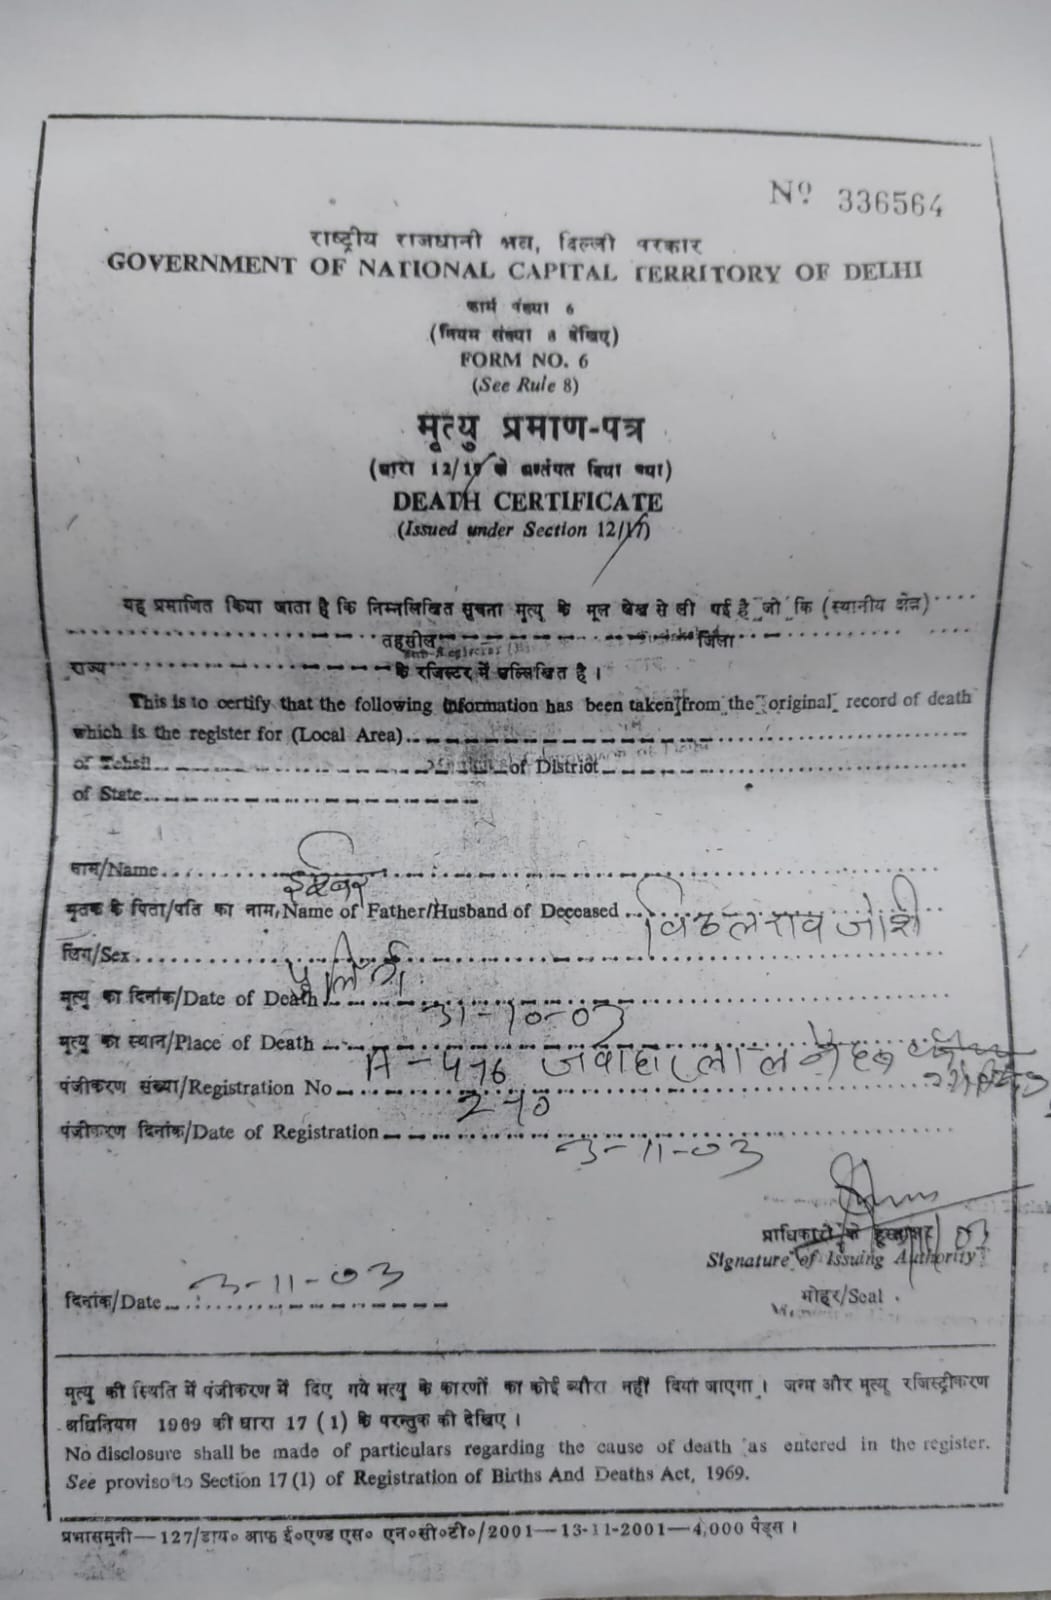 Nº 336564
राष्ट्रीय राजधानी क्षेत्र, दिल्ली सरकार
GOVERNMENT OF NATIONAL CAPITAL TERRITORY OF DELHI
फार्म संख्या 6
(नियम संख्या 8 देखिए)
FORM NO. 6
(See Rule 8)
मृत्यु प्रमाण-पत्र
(धारा 12/17 के अन्तर्गत दिया गया)
DEATH CERTIFICATE
(Issued under Section 12/17)
यह प्रमाणित किया जाता है कि निम्नलिखित सूचना मृत्यु के मूल लेख से ली गई है जो कि (स्थानीय क्षेत्र)
तहसील जिला
राज्य के रजिस्टर में उल्लिखित है ।
This is to certify that the following information has been taken from the original record of death
which is the register for (Local Area)
of Tehsil of District
of State
नाम/Name
मृतक के पिता/पति का नाम/Name of Father/Husband of Deceased विठलराव जोशी
लिंग/Sex
मृत्यु का दिनांक/Date of Death 31-10-03
मृत्यु का स्थान/Place of Death A-476 जवाहरलाल नेहरू
पंजीकरण संख्या/Registration No 240
पंजीकरण दिनांक/Date of Registration 3-11-03
प्राधिकारी के हस्ताक्षर
Signature of Issuing Authority
दिनांक/Date 3-11-03
मोहर/Seal
मृत्यु की स्थिति में पंजीकरण में दिए गये मृत्यु के कारणों का कोई ब्यौरा नहीं दिया जाएगा । जन्म और मृत्यु रजिस्ट्रीकरण
अधिनियम 1969 की धारा 17 (1) के परन्तुक की देखिए ।
No disclosure shall be made of particulars regarding the cause of death as entered in the register.
See proviso to Section 17 (1) of Registration of Births And Deaths Act, 1969.
प्रभासमुनी—127/डाय० आफ ई०एण्ड एस० एन०सी०टी०/2001—13-11-2001—4,000 पैड्स ।